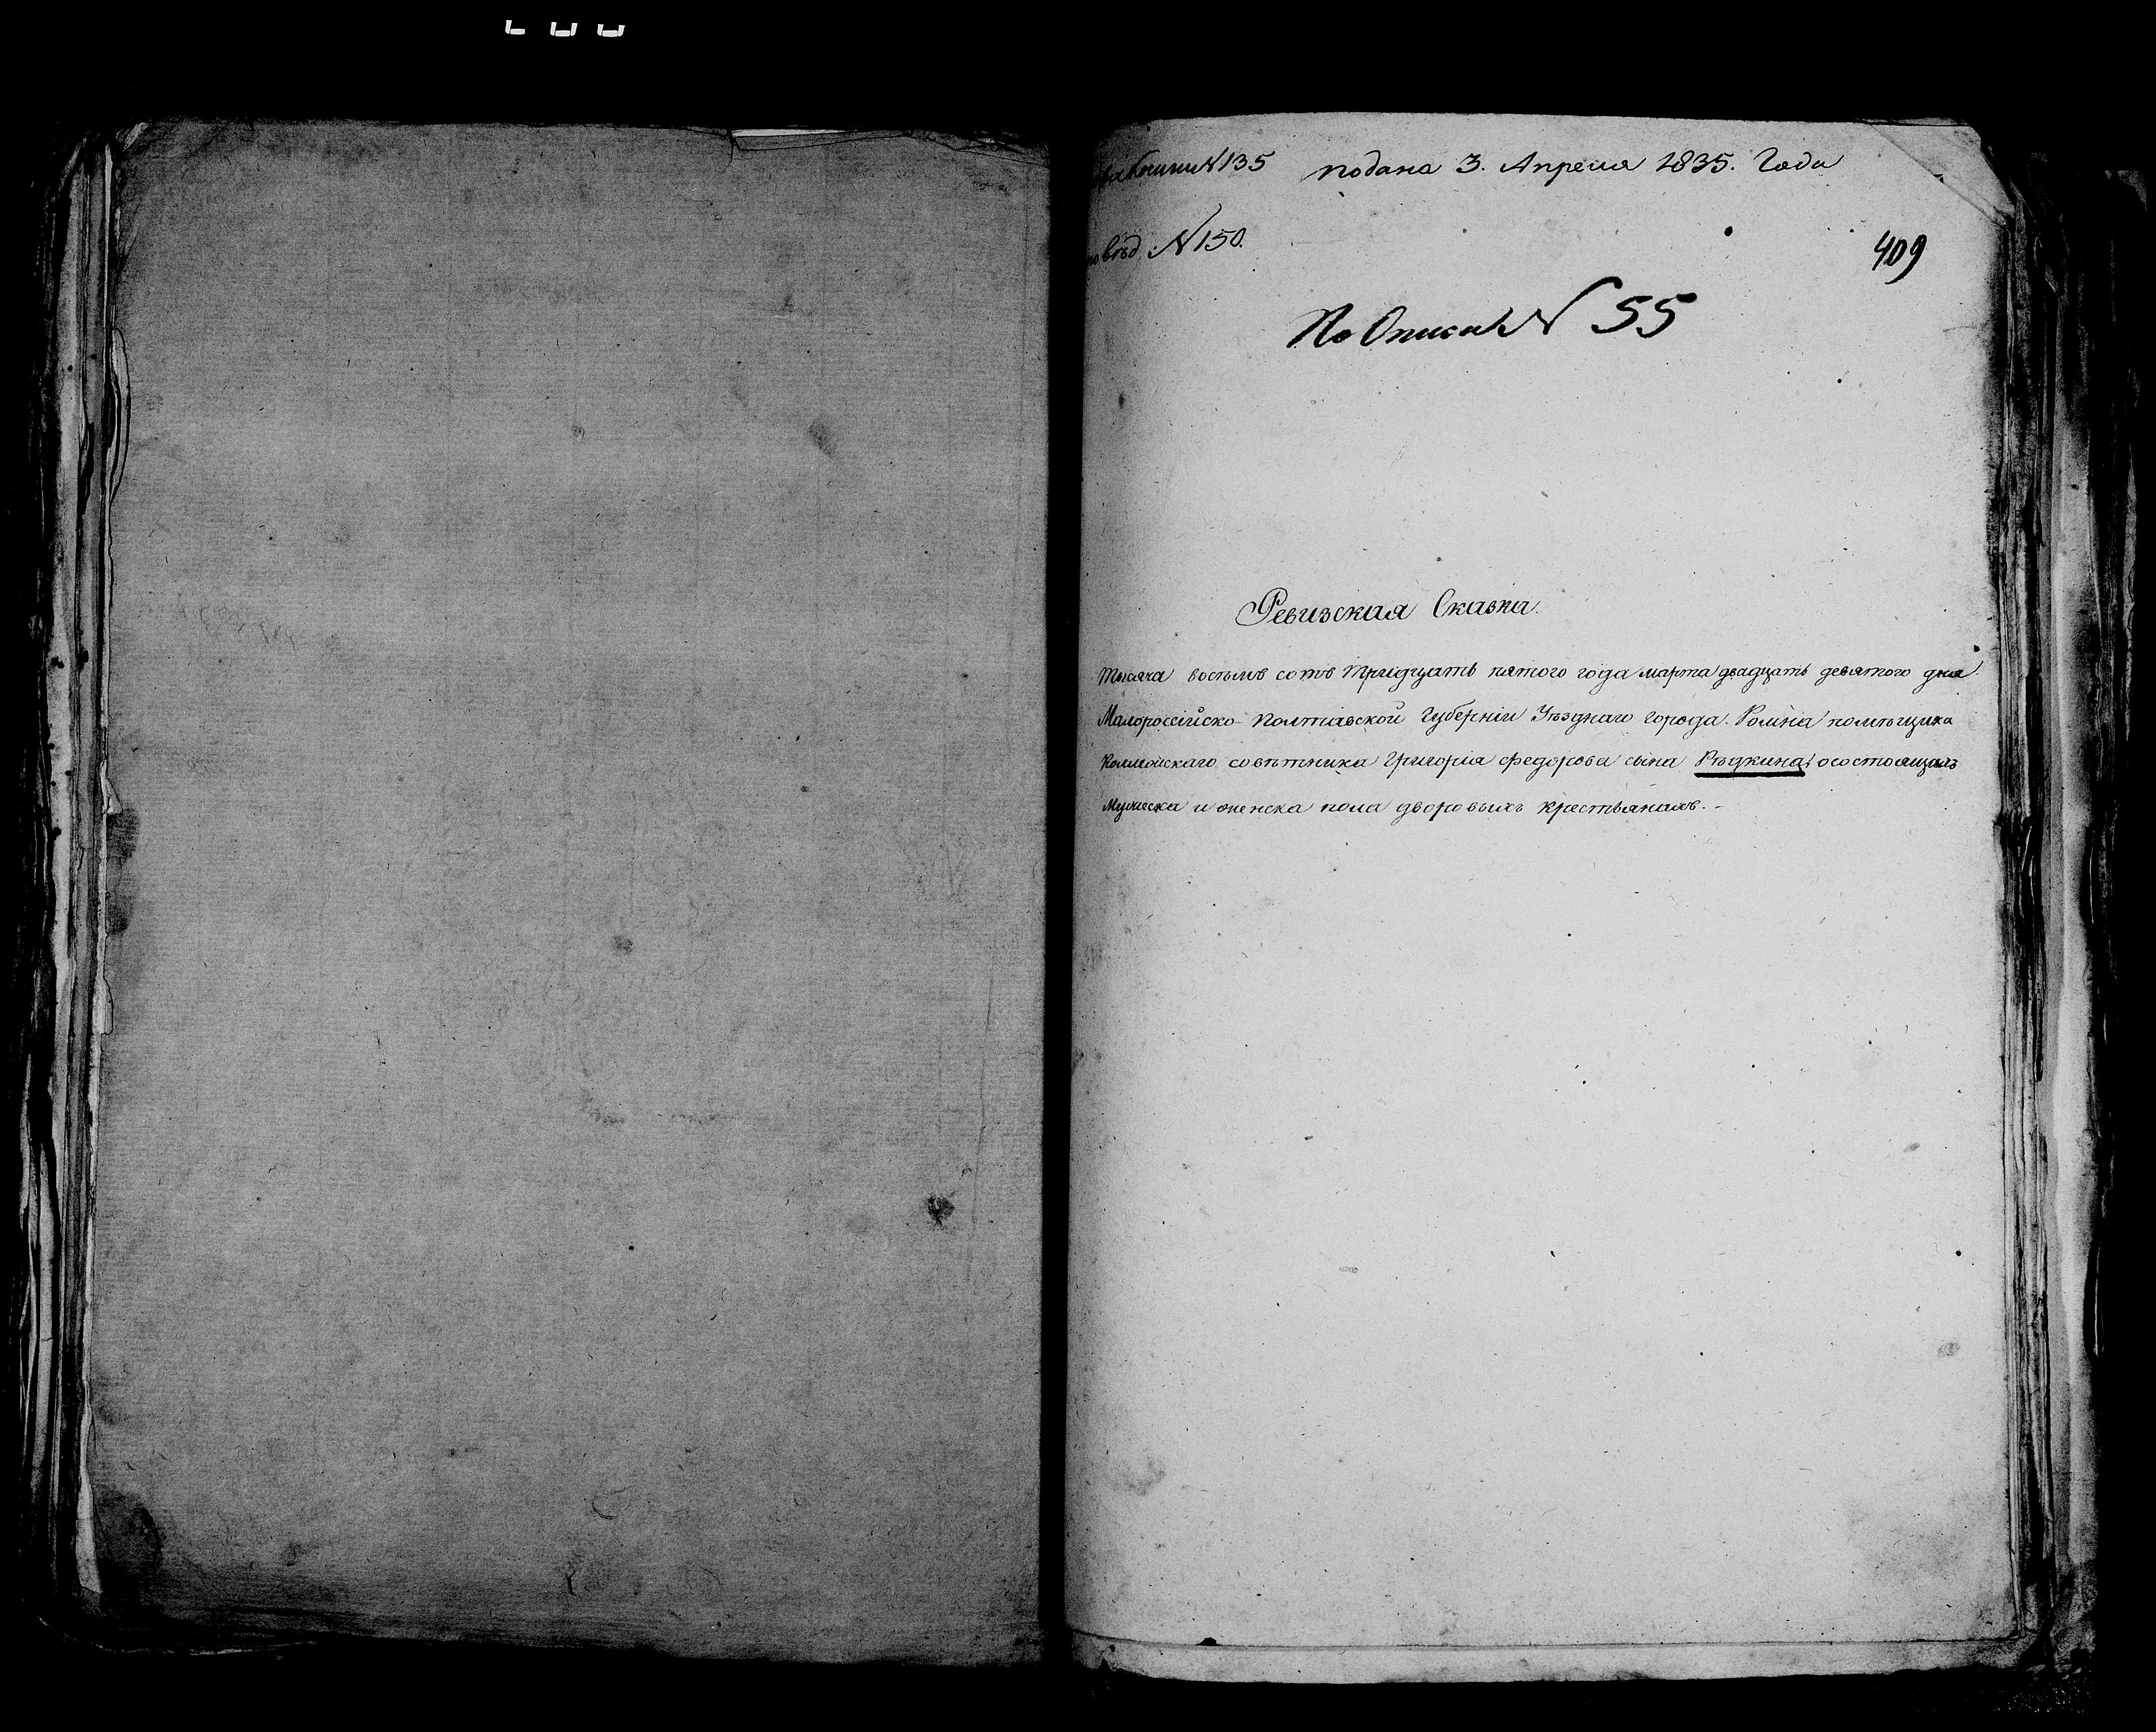 Книги N 135 подана 3. Апреля 1835. Года
вѣд. N 150.
409
По Описи N 55
Ревизская Сказка.
Тысяча восемь сотъ тридцать пятого года марта двадцать девятого дня
Малороссійско-Полтавской Губерніи Уѣзднаго города Ромна помѣщика
Коллежскаго совѣтника Григорія Федорова сына Рѣдкина, о состоящихъ
мужеска и женска пола дворовыхъ крестьянахъ.-